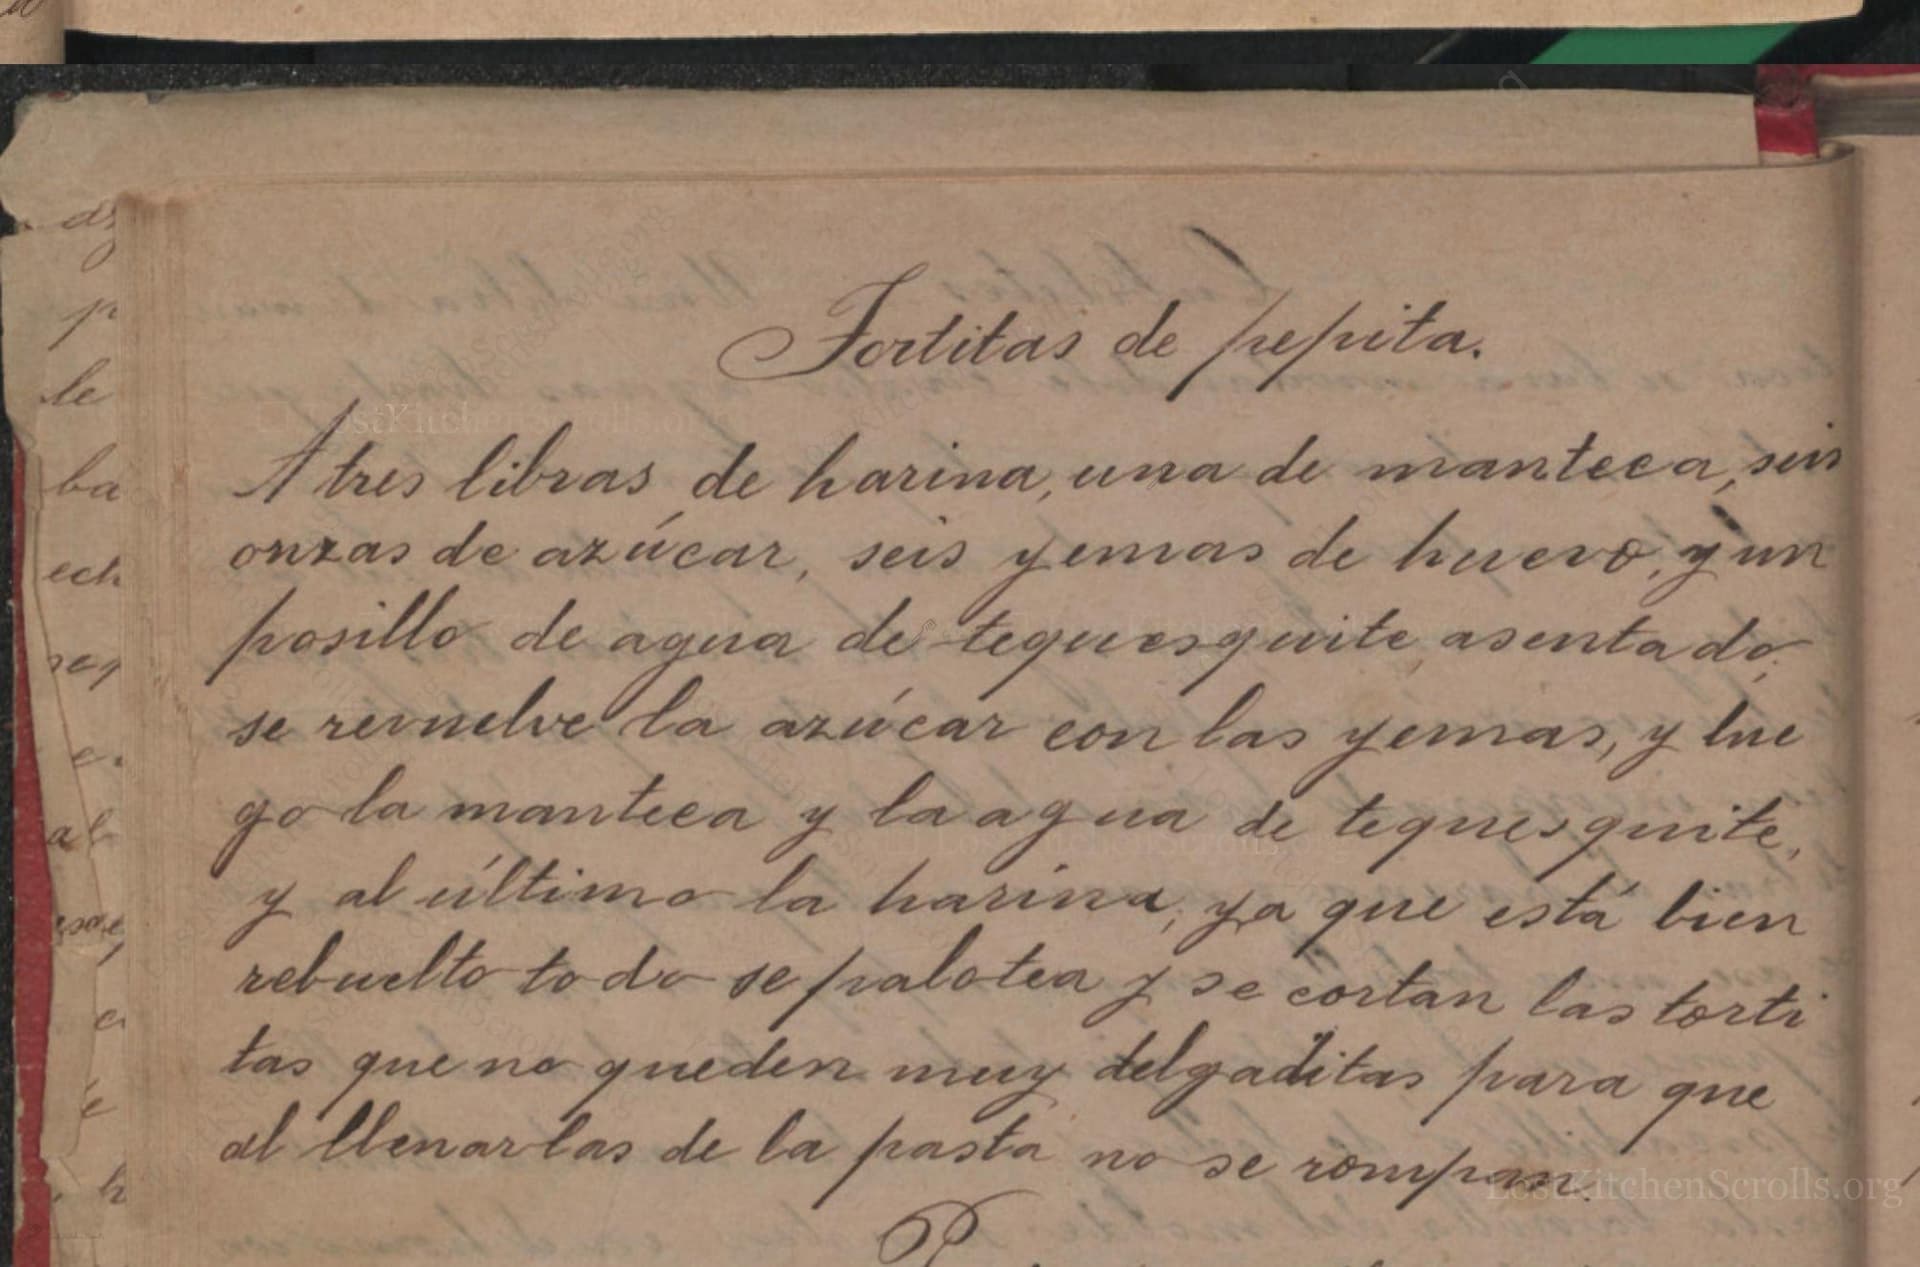 Tortitas de pepita.
A tres libras de harina, una de manteca, seis
onzas de azúcar, seis yemas de huevo, y un
posillo de agua de tequesquite asentado,
se revuelve la azúcar con las yemas, y lue
go la manteca y la agua de tequesquite,
y al último la harina, ya que está bien
rebuelto todo se palotea y se cortan las torti
tas que no queden muy delgaditas para que
al llenarlas de la pasta no se rompan.
LostKitchenScrolls.org